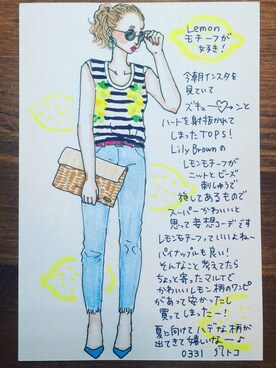 Lemon
モチーフが
好き!
今朝インスタを
見ていて
ズキュー♡ンと
ハートを射抜かれて
しまったTOPS!
Lily Brownの
レモンモチーフが
ニットとビーズ
刺しゅうで
施してあるもので
スーパーかわいいと
思って考想コーデです
レモンモチーフっていいよね〜
パイナップルも良い!
そんなこと考えてたら
ちょっと寄ったマルイで
かわいいレモン柄のワンピ
があって安かったし
買ってしまったー!
夏に向けてハデな柄が
出てきて嬉しいなー♪
0331